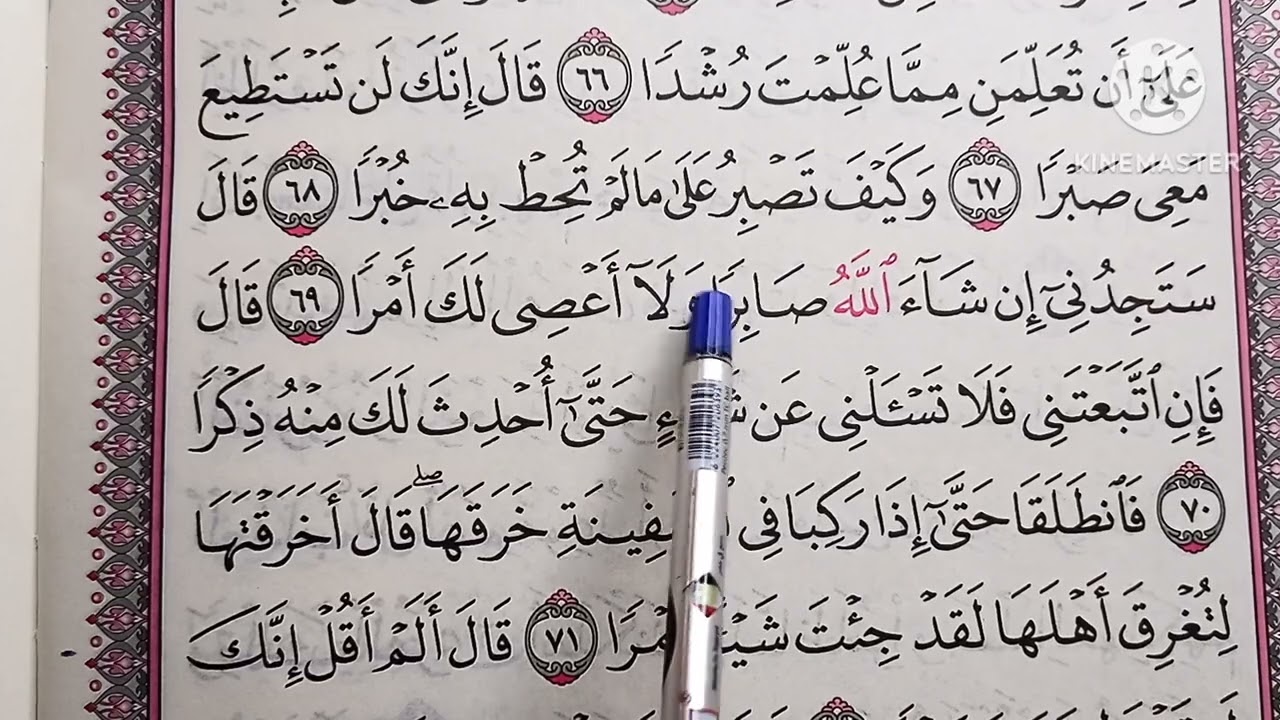 عَلَىٰٓ أَن تُعَلِّمَنِ مِمَّا عُلِّمْتَ رُشْدًا ٦٦ قَالَ إِنَّكَ لَن تَسْتَطِيعَ
KINEMASTER
مَعِىَ صَبْرًا ٦٧ وَكَيْفَ تَصْبِرُ عَلَىٰ مَا لَمْ تُحِطْ بِهِۦ خُبْرًا ٦٨ قَالَ
سَتَجِدُنِىٓ إِن شَآءَ ٱللَّهُ صَابِرًا وَلَآ أَعْصِى لَكَ أَمْرًا ٦٩ قَالَ
فَإِنِ ٱتَّبَعْتَنِى فَلَا تَسْـَٔلْنِى عَن حَتَّىٰٓ أُحْدِثَ لَكَ مِنْهُ ذِكْرًا
٧٠ فَٱنطَلَقَا حَتَّىٰٓ إِذَا رَكِبَا فِى خَرَقَهَا ۖ قَالَ أَخَرَقْتَهَا
لِتُغْرِقَ أَهْلَهَا لَقَدْ جِئْتَ ٧١ قَالَ أَلَمْ أَقُلْ إِنَّكَ